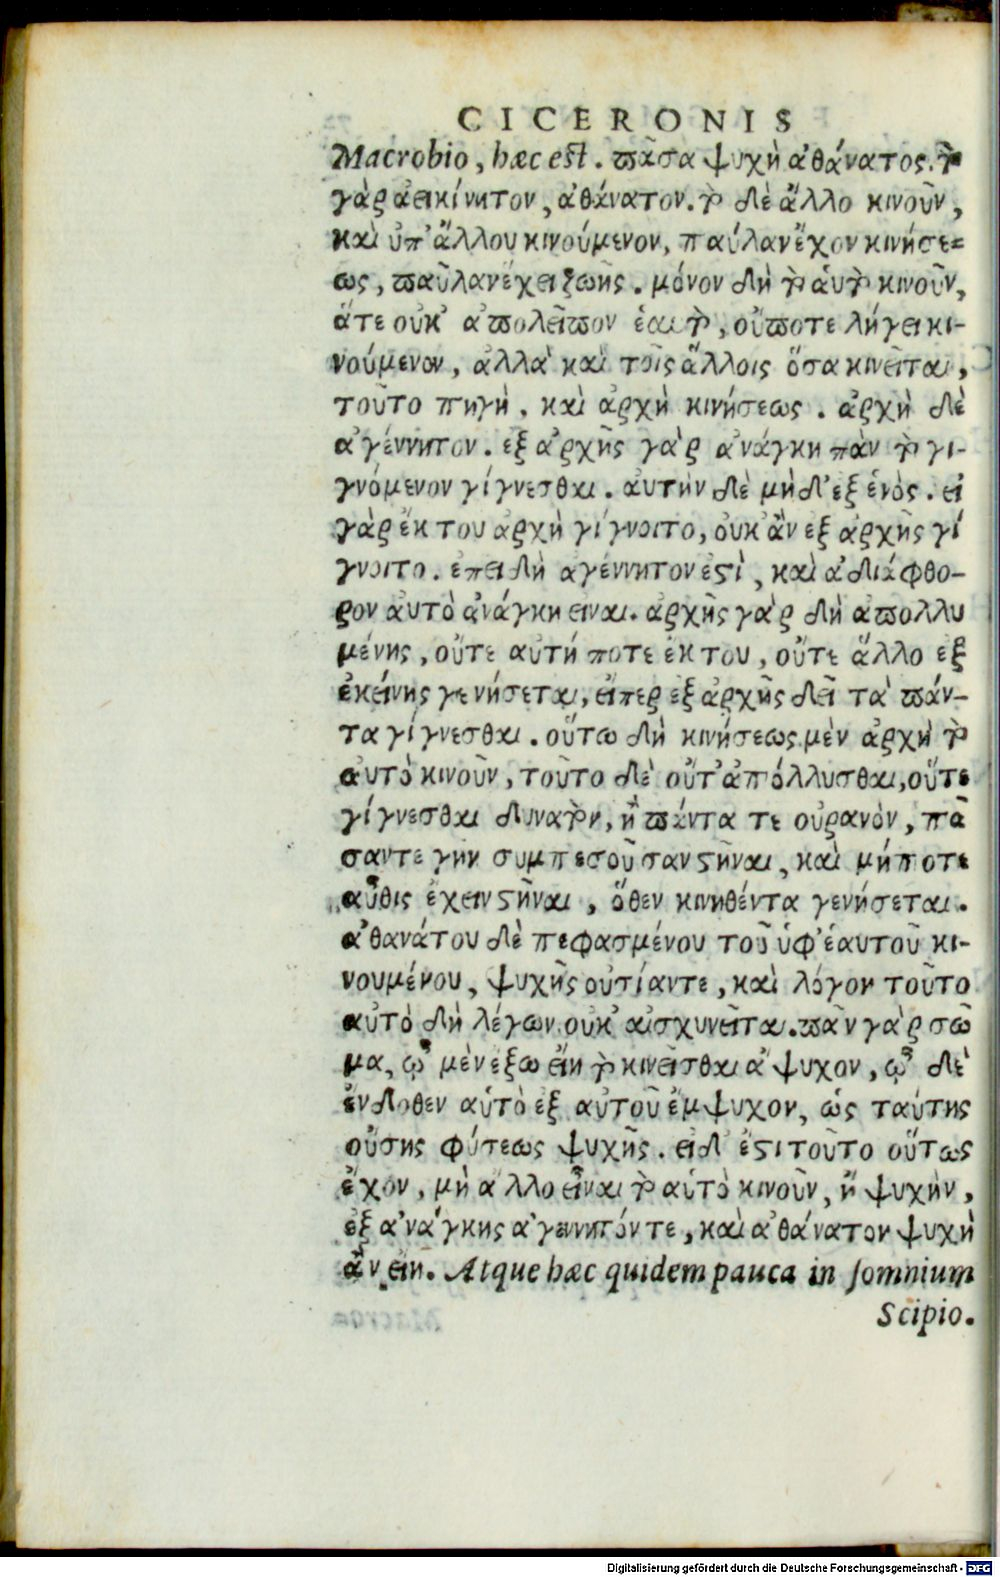 CICERONIS
Macrobio, hæc est. πᾶσα ψυχὴ ἀθάνατος. τὸ
γὰρ ἀεικίνητον, ἀθάνατον. τὸ δὲ ἄλλο κινοῦν,
καὶ ὑπ' ἄλλου κινούμενον, παύλαν ἔχον κινήσε=
ως, παῦλαν ἔχει ζωῆς. μόνον δὴ τὸ ἁυτὸ κινοῦν,
ἅτε οὐκ' ἀπολεῖπον ἑαυτὸ, οὔποτε λήγει κι-
νούμενον, ἀλλὰ καὶ τοῖς ἄλλοις ὅσα κινεῖται,
τοῦτο πηγὴ, καὶ ἀρχὴ κινήσεως. ἀρχὴ δὲ
ἀγέννητον. εξ ἀρχῆς γὰρ ἀνάγκη πὰν τὸ γι-
γνόμενον γίγνεσθαι. ἀυτὴν δὲ μὴδ' εξ ἑνὸς. εἰ
γὰρ ἔκ του ἀρχὴ γίγνοιτο, ὀυκ ἂν εξ ἀρχῆς γί
γνοιτο. ἐπει δὴ αγέννητον ἐστὶ, καὶ ἀδιάφθο-
ρον ἀυτὸ ἀνάγκη ειναι. ἀρχῆς γὰρ δὴ ἀπολλυ
μένης, οὔτε αυτή ποτε ἐκ του, οὔτε ἄλλο εξ
ἐκείνης γενήσεται, εἴπερ ἐξ ἀρχῆς δεῖ τὰ πάν-
τα γίγνεσθαι. οὕτω δὴ κινήσεως μὲν ἀρχὴ τὸ
αυτὸ κινοῦν, τοῦτο δὲ οὔτ' ἀπόλλυσθαι, οὔτε
γίγνεσθαι δυνατὸν, ἢ πάντα τε οὐρανὸν, πᾶ
σαντε γην συμπεσοῦσαν στῆναι, καὶ μήποτε
αὖθις ἐχειν στῆναι, ὅθεν κινηθέντα γενήσεται.
ἀθανάτου δὲ πεφασμένου τοῦ ὑφ' ἑαυτοῦ κι-
νουμένου, ψυχῆς οὐσίαντε, καὶ λόγον τοῦτο
αὐτὸ δὴ λέγων οὐκ' αἰσχυνεῖται. πᾶν γὰρ σῶ
μα, ᾧ μὲν εξω εἴη τὸ κινεῖσθαι ἄψυχον, ᾧ δὲ
ἔνδοθεν αὑτὸ εξ αὐτοῦ ἔμψυχον, ὡς ταύτης
οὔσης φύσεως ψυχῆς. ειδ' ἔστι τοῦτο οὕτως
ἔχον, μὴ ἄλλο εἶναι τὸ αὑτὸ κινοῦν, ἢ ψυχὴν,
ἐξ ἀνάγκης ἀγεννητόν τε, καὶ ἀθάνατον ψυχὴ
ἂν εἴη. Atque hæc quidem pauca in somnium
Scipio.
Digitalisierung gefördert durch die Deutsche Forschungsgemeinschaft - DFG